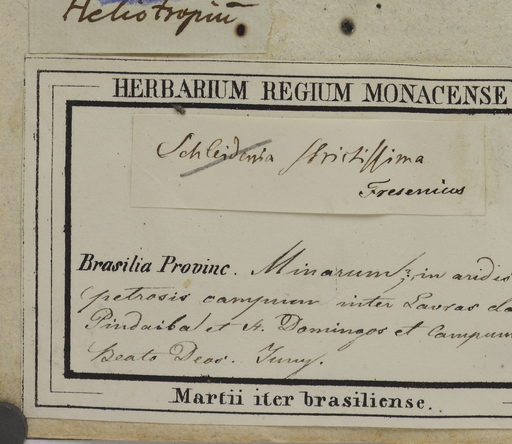 Heliotropiū
HERBARIUM REGIUM MONACENSE
Schleidenia strictissima
Fresenius
Brasilia Provinc. Minarum; in aridis
petrosis campum inter Lavras do
Pindaibal et S. Domingos et Campum
Beato Deos.
Martii iter brasiliense.